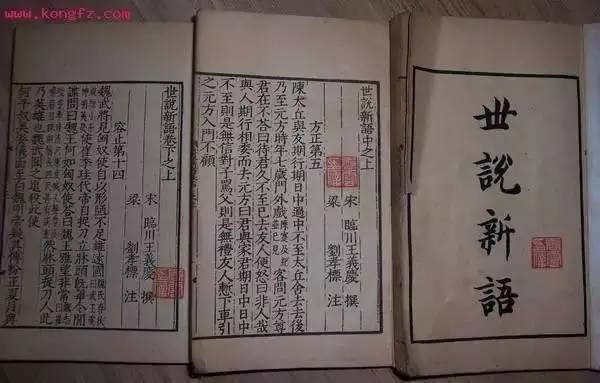 www.kongfz.com
世說新語
世說新語中之上
方正第五
宋 臨川王義慶 撰
梁 劉孝標 注
陳太丘與友期行期日中過中不至太丘舍去去後
乃至元方時年七歲門外戲陳寔及紀並已見客問元方尊
君在不答曰待君久不至已去友人便怒曰非人哉
與人期行相委而去元方曰君與家君期日中日中
不至則是無信對子罵父則是無禮友人慙下車引
之元方入門不顧
世說新語卷下之上
容止第十四
宋 臨川王義慶 撰
梁 劉孝標 注
魏武將見匈奴使自以形陋不足雄遠國魏氏春秋曰武王姿
貌短小而神明英發使崔季珪代帝自捉刀立牀頭既畢令閒
諜問曰魏王何如匈奴使答曰魏王雅望非常
然牀頭捉刀人此
乃英雄也魏武聞之追殺此使
何平叔美姿儀面至白魏明帝疑其傅粉正夏月與